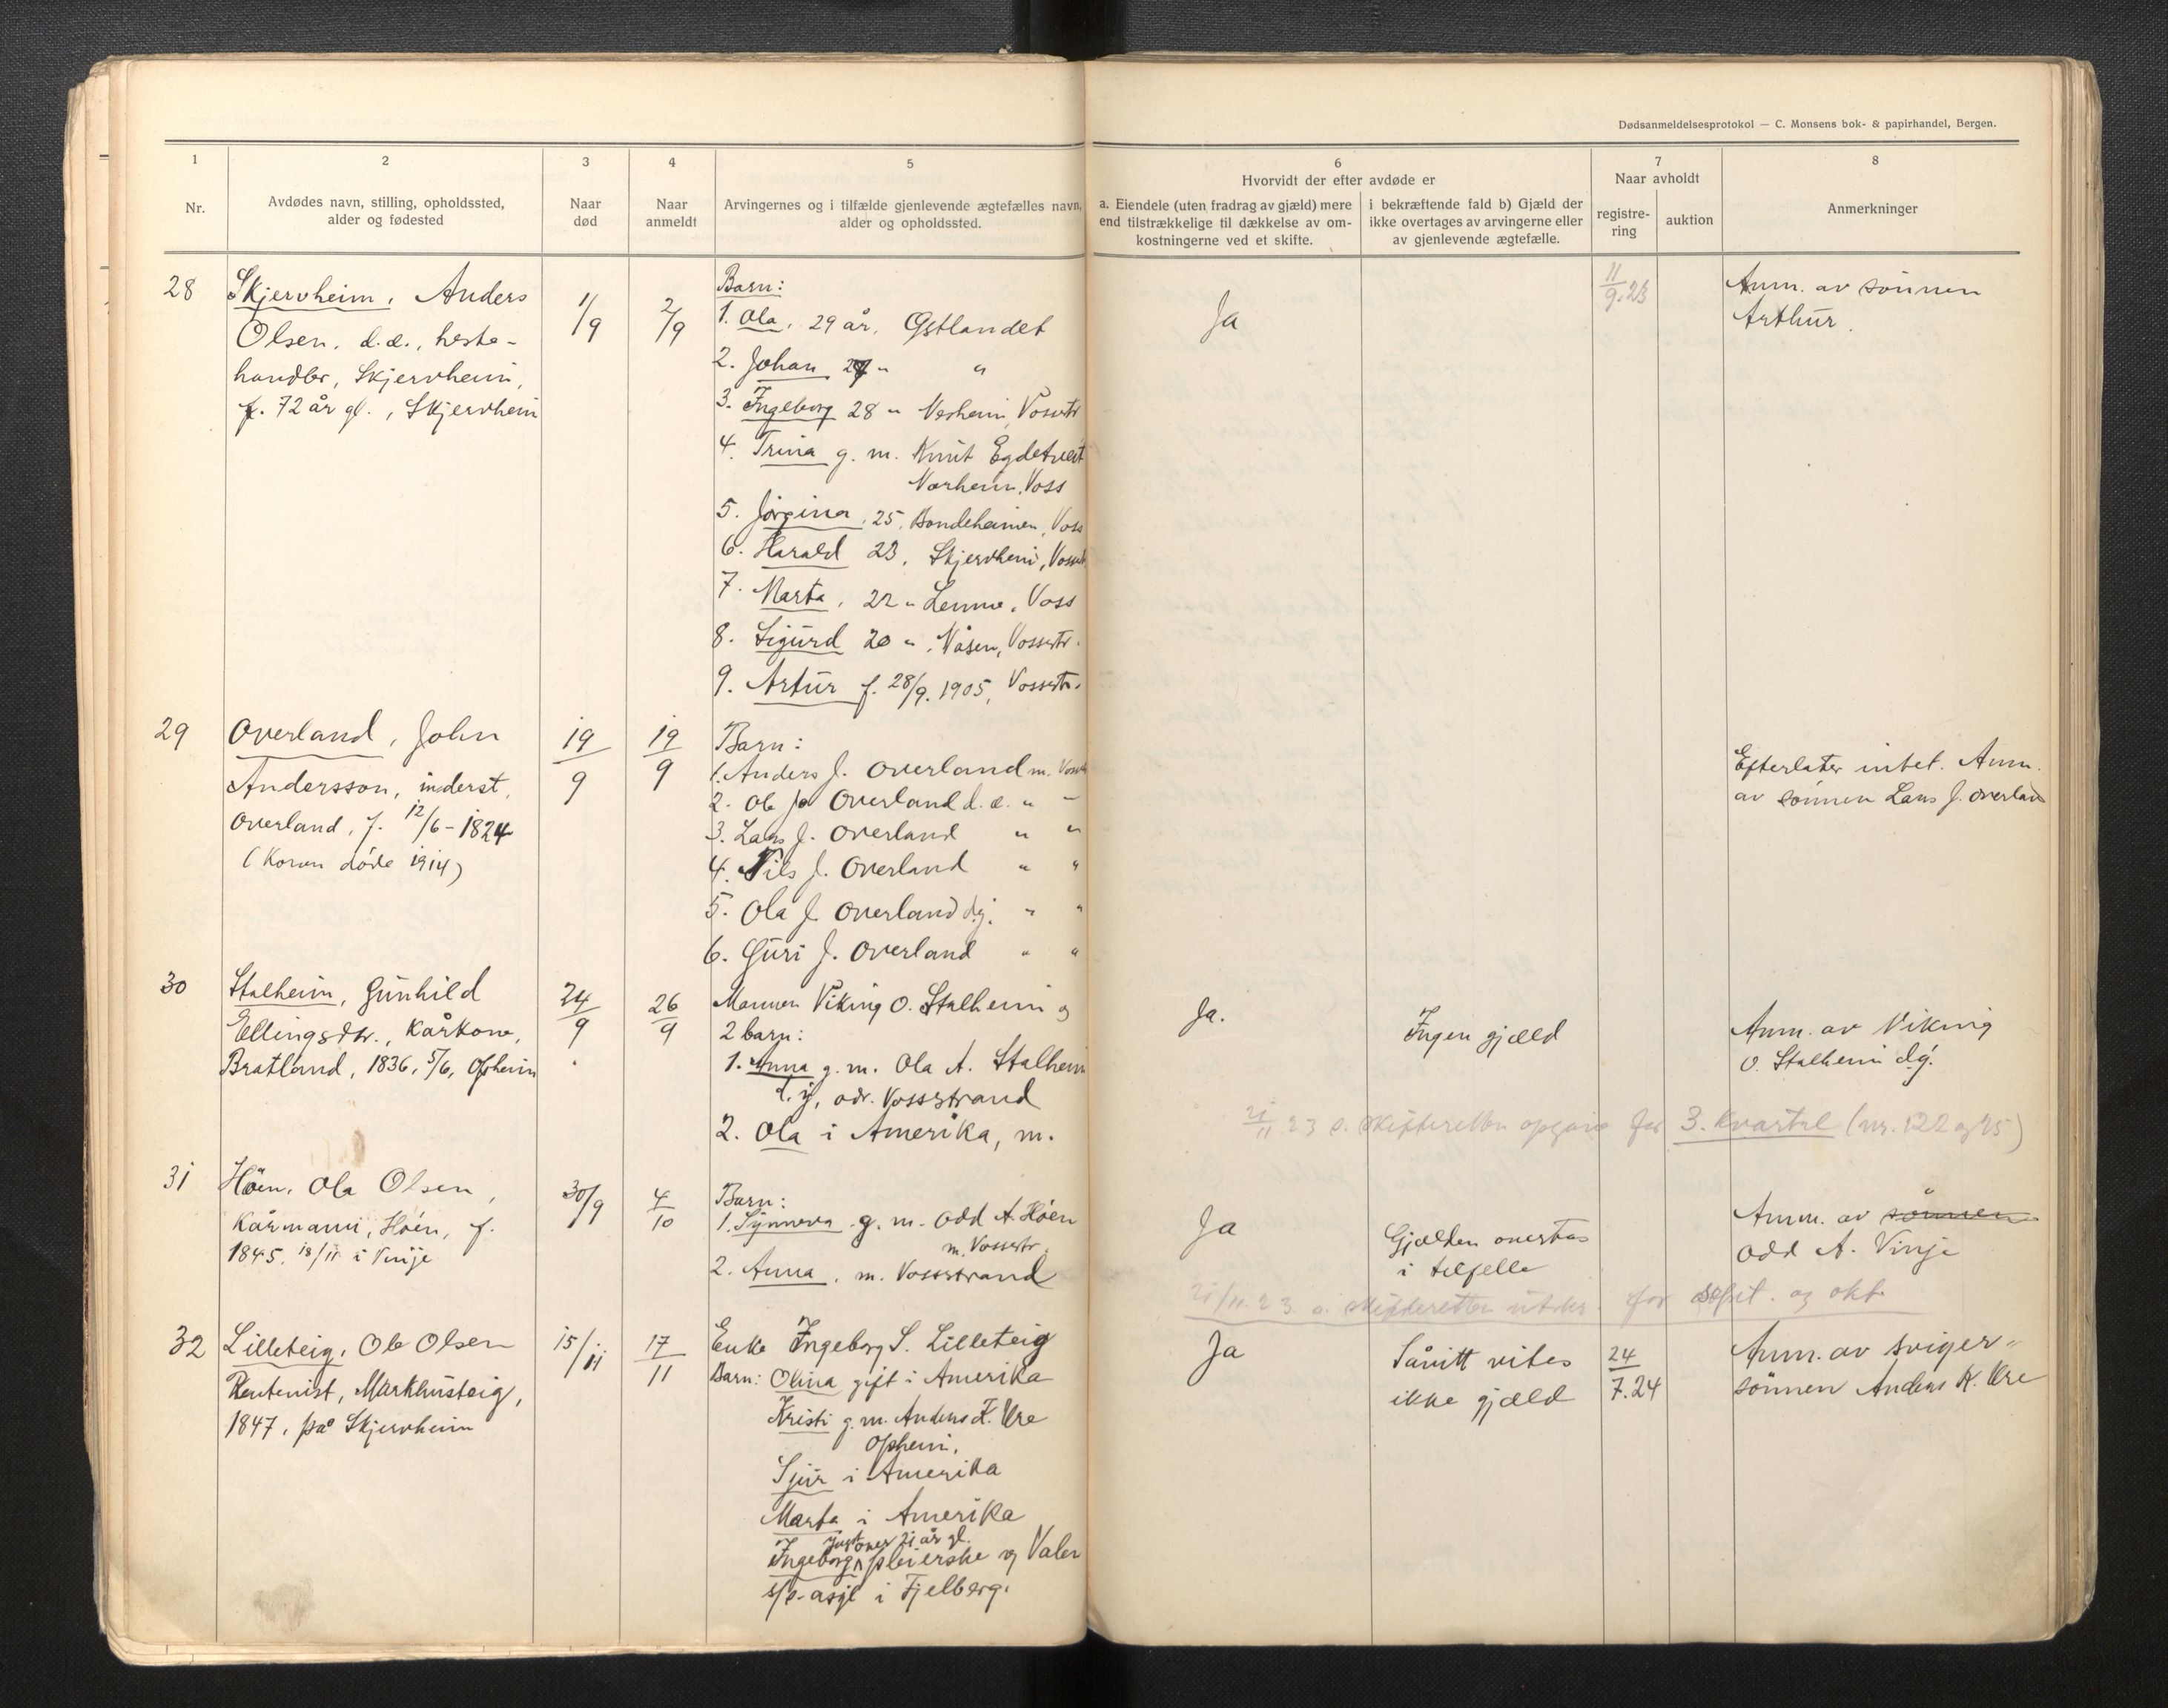 Dødsanmeldelsesprotokol — C. Monsens bok- & papirhandel, Bergen.
1 2 3 4 5 6 7 8
Nr.
Avdødes navn, stilling, opholdssted,
alder og fødested
Naar
død
Naar
anmeldt
Arvingernes og i tilfælde gjenlevende ægtefælles navn,
alder og opholdssted.
Hvorvidt der efter avdøde er
a. Eiendele (uten fradrag av gjæld) mere
end tilstrækkelige til dækkelse av om-
kostningerne ved et skifte.
i bekræftende fald b) Gjæld der
ikke overtages av arvingerne eller
av gjenlevende ægtefælle.
Naar avholdt
registre-
ring
auktion
Anmerkninger
28
Skjervheim, Anders
Olsen, d.æ., heste-
handler, Skjervheim,
f. 72 år gl., Skjervheim
1/9
2/9
Barn:
1. Ola, 29 år, Østlandet
2. Johan 27 " "
3. Ingeborg 28 " Vossestr
4. Trina g. m. Knut Egdetveit
Voss
5. Jørgina, 25, Bondeheimen, Voss
6. Harald 23, Skjervheim, Vossestr
7. Marta, 22 " Lemme, Voss
8. Sigurd 20 ", Nåsen, Vossestr.
9. Artur f. 28/9. 1905, Vossestr.
Ja
11
9.23
Anm. av sönnen
Arthur.
29
Overland, John
Andersson, inderst,
Overland, f. 12/6 - 1824
(Konen döde 1914)
19
9
19
9
Barn:
1. Anders J. Overland m. Vossestr
2. Ole J. Overland d. æ. " "
3. Lars J. Overland " "
4. Nils J. Overland " "
5. Ola J. Overland d.y. " "
6. Guri J. Overland " "
Efterlater intet. Anm.
av sönnen Lars J. Overland
30
Stalheim, Gunhild
Ellingsdtr., kårkone,
Bratland, 1836, 5/6, Opheim
24
9
26
9
Mannen Viking O. Stalheim og
2 barn:
1. Anna g. m. Ola A. Stalheim
d. y., adr. Vossestrand
2. Ola i Amerika, m.
Ja.
Ingen gjæld
Anm. av Viking
O. Stalheim d.y.
21
11 23 s. skifteretten opgave for 3. kvartal (nr. 122 og 25)
31
Höen, Ola Olsen,
Kårmann, Höen, f.
1845, 18/11 i Vinje
30/9
4
10
Barn:
1. Synneva g. m. Odd A. Höen
m. Vossestr.
2. Anna, m. Vossestrand
Ja
Gjælden overtas
i tilfelle
Anm. av sönnen
Odd A. Vinje
21/11.23 s. skifteretten utskr. for sept. og okt.
32
Lilleteig, Ole Olsen
Rentenist, Markhusteig,
1847, på Skjervheim
15/11
17
11
Enke Ingeborg S. Lilleteig
Barn: Olina gift i Amerika
Kristi g. m. Anders K. Vre
Opheim.
Sjur i Amerika
Marta i Amerika
over 21 år gl.
Ingeborg, pleierske ved Valen
s/s-asyl i Fjelberg.
Ja
Såvitt vites
ikke gjæld
24
7.24
Anm. av sviger-
sönnen Anders K. Vre